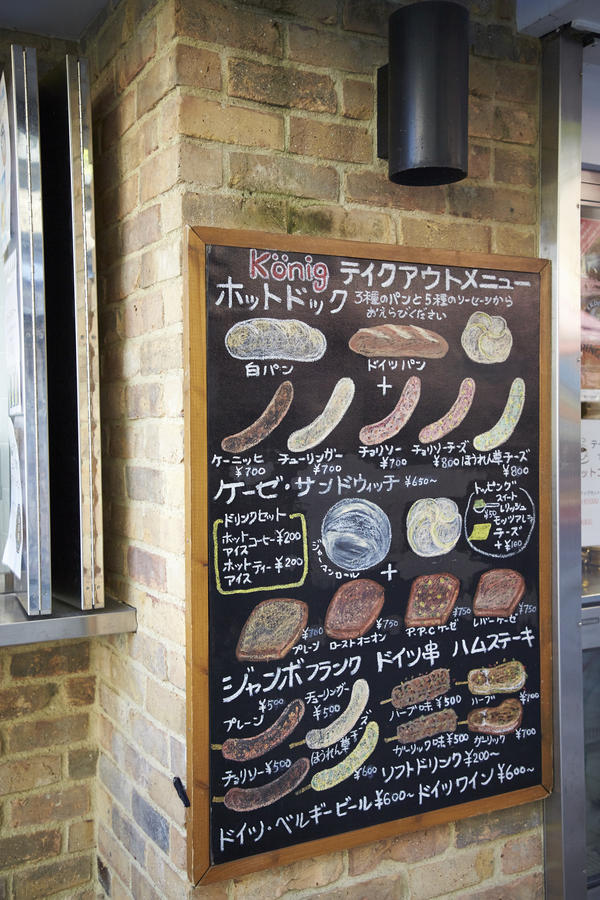 König テイクアウトメニュー
ホットドック 3種のパンと5種のソーセージから
おえらびください
白パン
ドイツパン
+
ケーニッヒ ¥700
チューリンガー ¥700
チョリソー ¥700
チョリソーチーズ ¥800
ほうれん草チーズ ¥800
ケーゼ・サンドウィッチ ¥650~
ドリンクセット
ホットコーヒー ¥200
アイス
ホットティー ¥200
アイス
ジャーマンロール
トッピング
スイート
レリッシュ
¥50
モッツァレラ
チーズ
+¥100
+
プレーン
ローストオニオン ¥750
P.P.Cケーゼ ¥750
レバーケーゼ ¥750
ジャンボフランク
ドイツ串
ハムステーキ
プレーン ¥500
チューリンガー ¥500
ハーブ味 ¥500
ハーブ ¥700
チョリソー ¥500
ほうれん草チーズ ¥600
ガーリック味 ¥500
ガーリック ¥700
ソフトドリンク ¥200~
ドイツ・ベルギービール ¥600~ ドイツワイン ¥600~